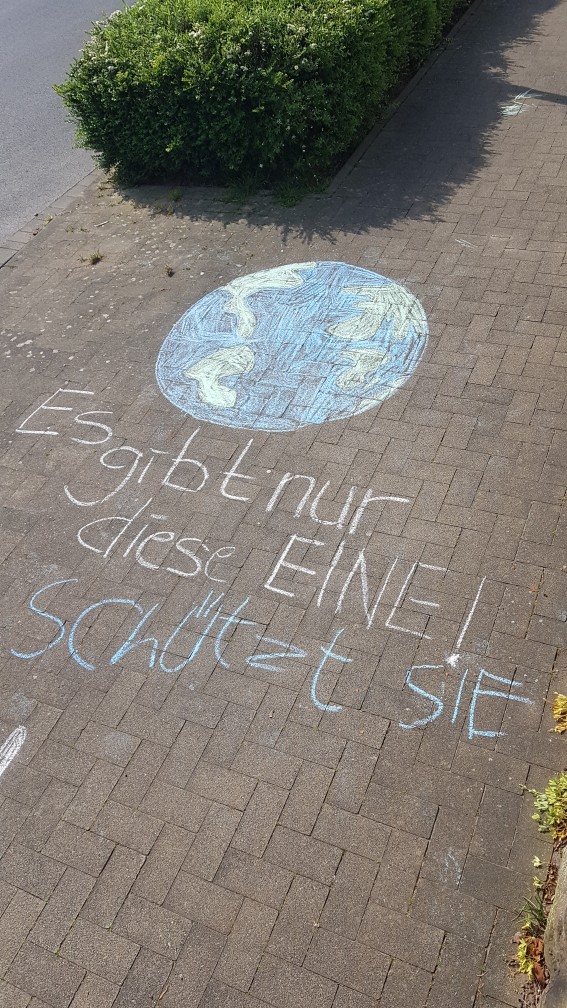 Es
gibt nur
diese EINE!
Schützt SIE